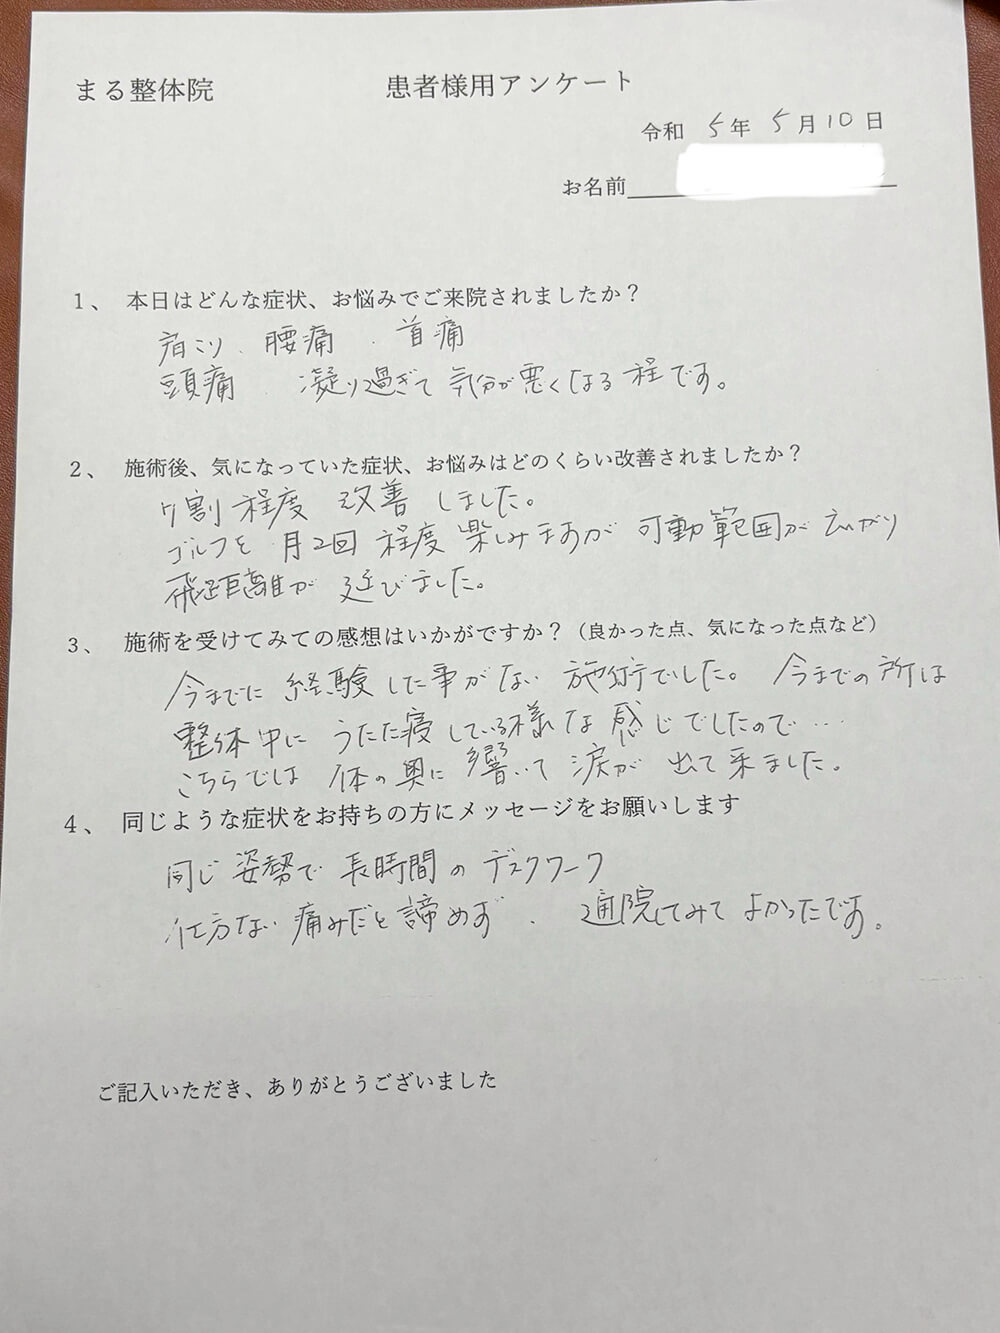 まる整体院 患者様用アンケート
令和 5年 5月10日
お名前
1、 本日はどんな症状、お悩みでご来院されましたか？
肩こり、腰痛、首痛
頭痛 、凝り過ぎて気分が悪くなる程です。
2、 施術後、気になっていた症状、お悩みはどのくらい改善されましたか？
7割程度 改善しました。
ゴルフを月2回程度楽しみますが可動範囲が広がり
飛距離が延びました。
3、 施術を受けてみての感想はいかがですか？（良かった点、気になった点など）
今までに経験した事がない施術でした。今までの所は
整体中にうたた寝している様な感じでしたので…
こちらでは体の奥に響いて涙が出て来ました。
4、 同じような症状をお持ちの方にメッセージをお願いします
同じ姿勢で長時間のデスクワーク
仕方ない痛みだと諦めず、通院してみてよかったです。
ご記入いただき、ありがとうございました